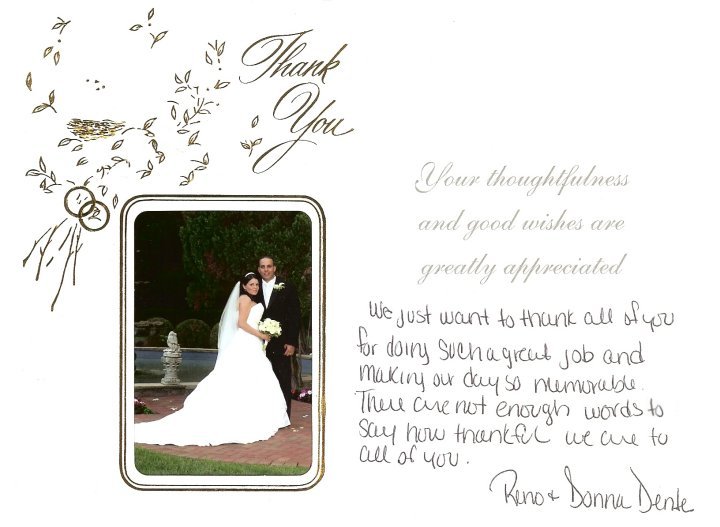 Thank
You
Your thoughtfulness
and good wishes are
greatly appreciated
We just want to thank all of you
for doing such a great job and
making our day so memorable.
There are not enough words to
say how thankful we are to
all of you.
Reno + Donna